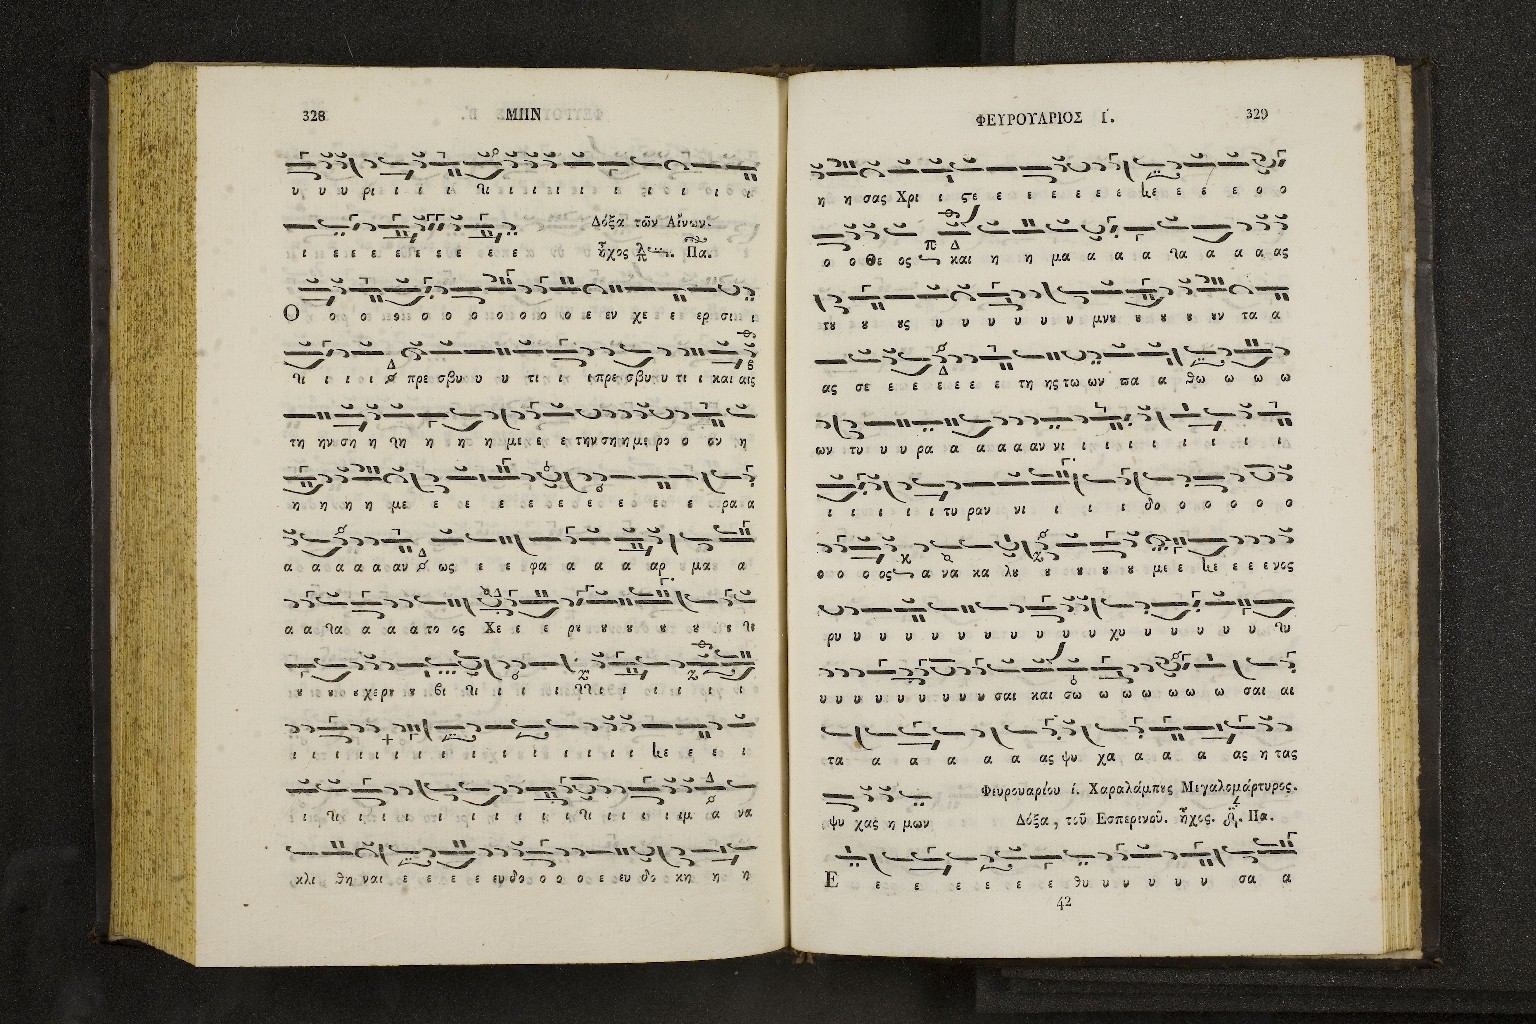 328 ΜΗΝ
υ υ υ ρι ι ι ι ι ι ι ι ι ι ι ι ι ι ι
Δόξα τῶν Αἴνων.
ι ε ε ε ε ε ε ε ε ἦχος Πα.
Ο ο ο ο ο ο ο ο ο ο ο ε εν χε ε ε ερ σι ι ι
ι ι ι πρε σβυ υ υ τι ι ι πρε σβυ υ τι ι και αις
τη ην ση η η η η η με ε ε την ση η με ρο ο ον η
η η η η με ε ε ε ε ε ε ε ε ε ε ρα α
α α α α α αν ως ε ε φα α α α αρ μα α
α α α α α α το ος Χε ε ε ρȣ ȣ ȣ ȣ ȣ ȣ ȣ
ȣ ȣ ȣ χε ρȣ ȣ βι ι ι ι ι ι ι ι ι ι
ι ι ι ι ι ι ι ι ι ι ι ι ι ι ε ε ε ι
ι ι ι ι ι ι ι ι ι ι ι ι ι ιμ α να
κλι θη ναι ε ε ε ε ευ δο ο ο ο ε ευ δο κη η η
ΦΕΥΡΟΥΑΡΙΟΣ Ι. 329
η η σας Χρι ι ϛε ε ε ε ε ε ε ε ε ε ε ο ο
ο ο Θε ος και η η μα α α α α α α ας
τȣ ȣ ȣς υ υ υ υ υ υ μνȣ ȣ ȣ ȣ ȣν τα α
ας σε ε ε ε ε ε ε τη ης τω ων πα α θω ω ω ω
ων τυ υ υ ρα α α α α αν νι ι ι ι ι ι ι ι ι
ι ι ι ι ι τυ ραν νι ι ι ι δο ο ο ο ο
ο ο ο ος α να κα λȣ ȣ ȣ ȣ ȣ ȣ με ε ε ε ε ε νος
ρυ υ υ υ υ υ υ υ υ υ υ χυ υ υ υ υ υ
υ υ υ υ υ υ υ υ υ σαι και σω ω ω ω ω ω ω σαι αι
τα α α α α α ας ψυ χα α α α ας η τας
Φευρουαρίου ί. Χαραλάμπȣς Μεγαλομάρτυρος.
ψυ χας η μων Δόξα, τοῦ Εσπερινοῦ. ἦχος. Πα.
Ε ε ε ε ε ε ε θυ υ υ υ υ υ σα α
42